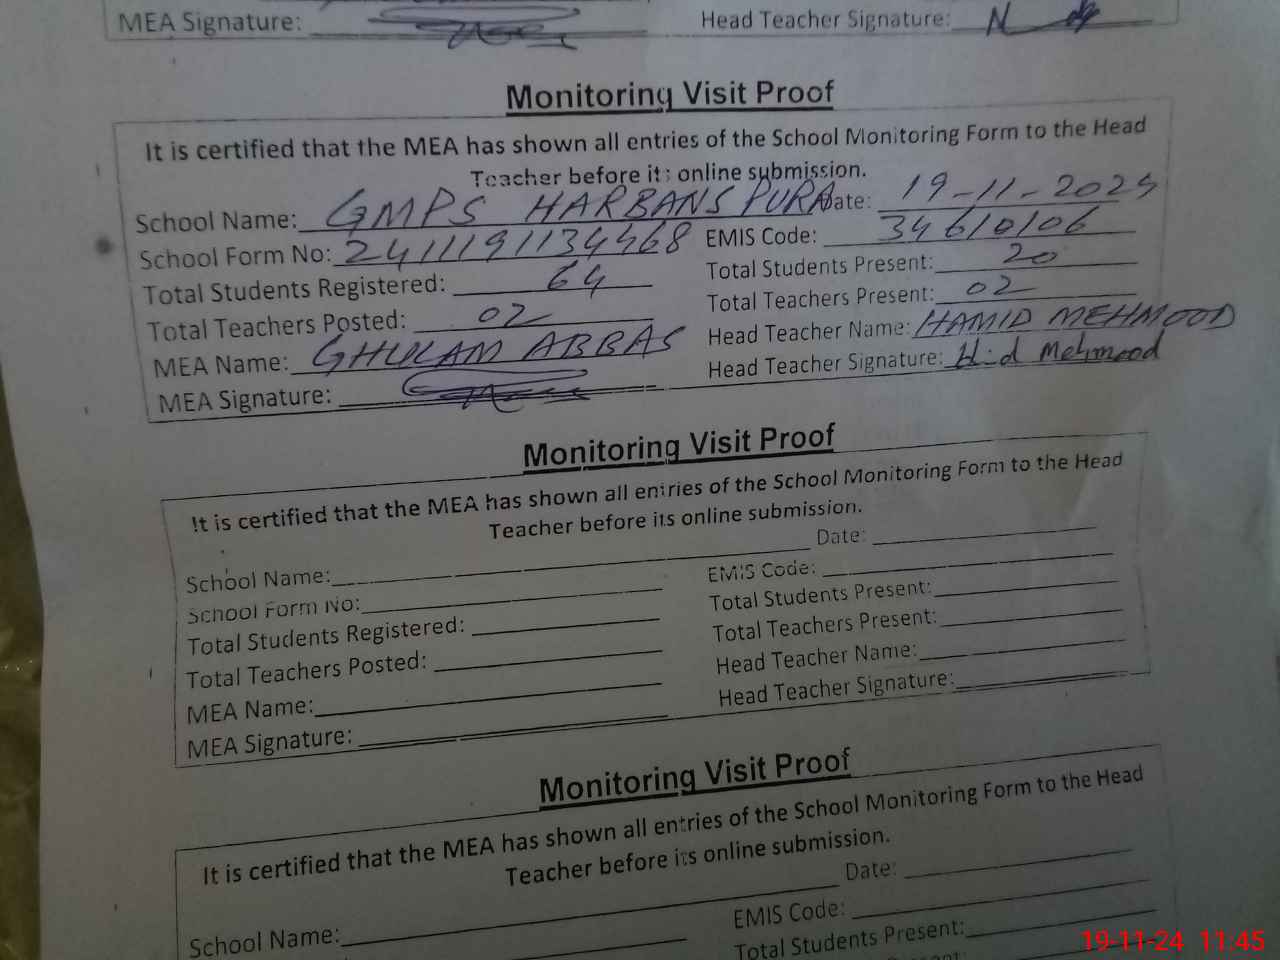 MEA Signature: Head Teacher Signature:
Monitoring Visit Proof
It is certified that the MEA has shown all entries of the School Monitoring Form to the Head
Teacher before its online submission.
School Name: GMPS HARBANS PURA Date: 19-11-2024
School Form No: 2411191134468 EMIS Code: 34610106
Total Students Registered: 64 Total Students Present: 20
Total Teachers Posted: 02 Total Teachers Present: 02
MEA Name: GHULAM ABBAS Head Teacher Name: HAMID MEHMOOD
MEA Signature: Head Teacher Signature: H-d Mehmood
Monitoring Visit Proof
It is certified that the MEA has shown all entries of the School Monitoring Form to the Head
Teacher before its online submission.
School Name: Date:
School Form No: EMIS Code:
Total Students Registered: Total Students Present:
Total Teachers Posted: Total Teachers Present:
MEA Name: Head Teacher Name:
MEA Signature: Head Teacher Signature:
Monitoring Visit Proof
It is certified that the MEA has shown all entries of the School Monitoring Form to the Head
Teacher before its online submission.
School Name: Date:
EMIS Code:
Total Students Present:
19-11-24 11:45